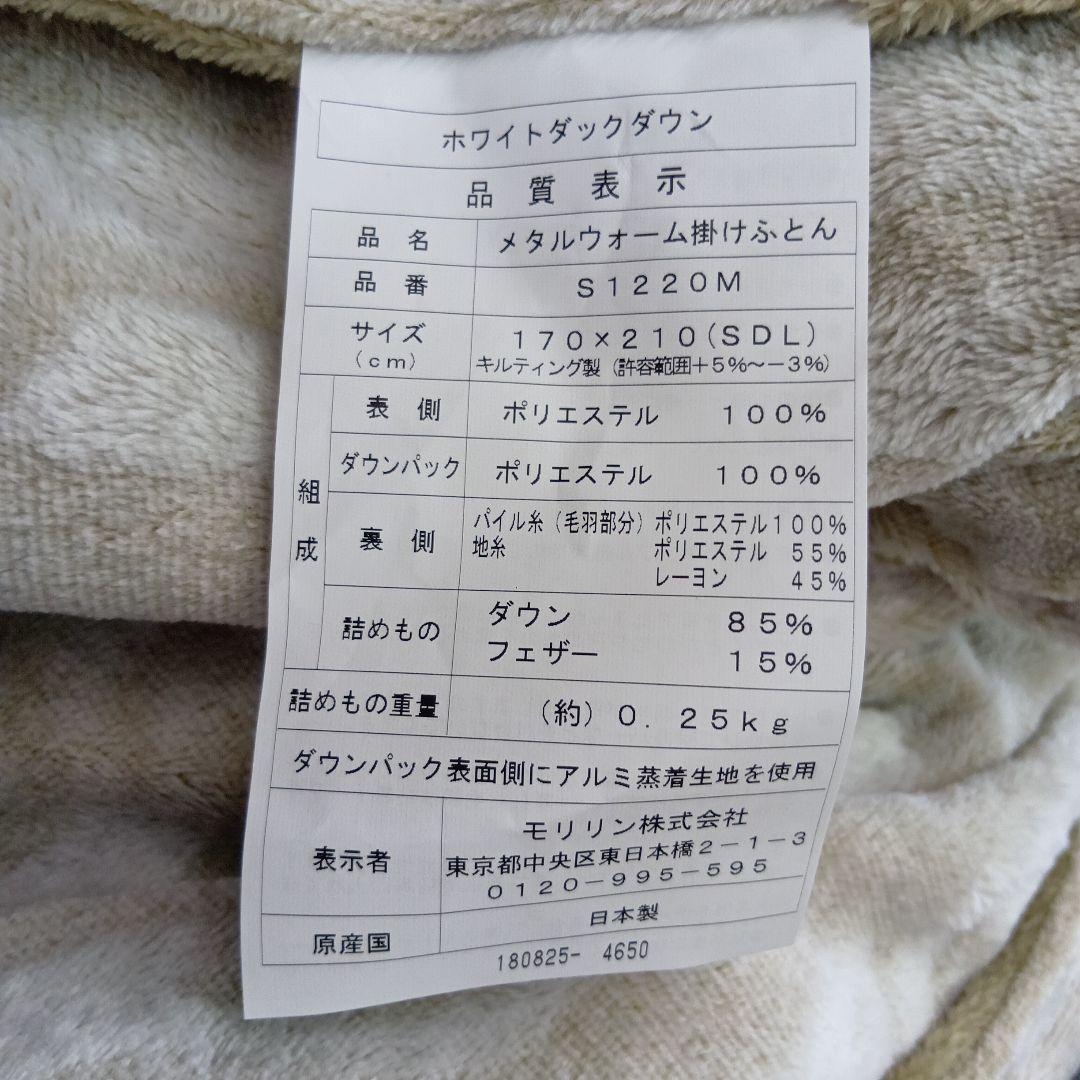 ホワイトダックダウン
品質表示
品名 メタルウォーム掛けふとん
品番 S1220M
サイズ(cm) 170×210(SDL)
キルティング製(許容範囲+5%〜−3%)
組成
表側 ポリエステル 100%
ダウンパック ポリエステル 100%
裏側 パイル糸(毛羽部分) ポリエステル100%
地糸 ポリエステル 55%
レーヨン 45%
詰めもの ダウン 85%
フェザー 15%
詰めもの重量 (約)0.25kg
ダウンパック表面側にアルミ蒸着生地を使用
表示者 モリリン株式会社
東京都中央区東日本橋2−1−3
0120−995−595
原産国 日本製
180825- 4650